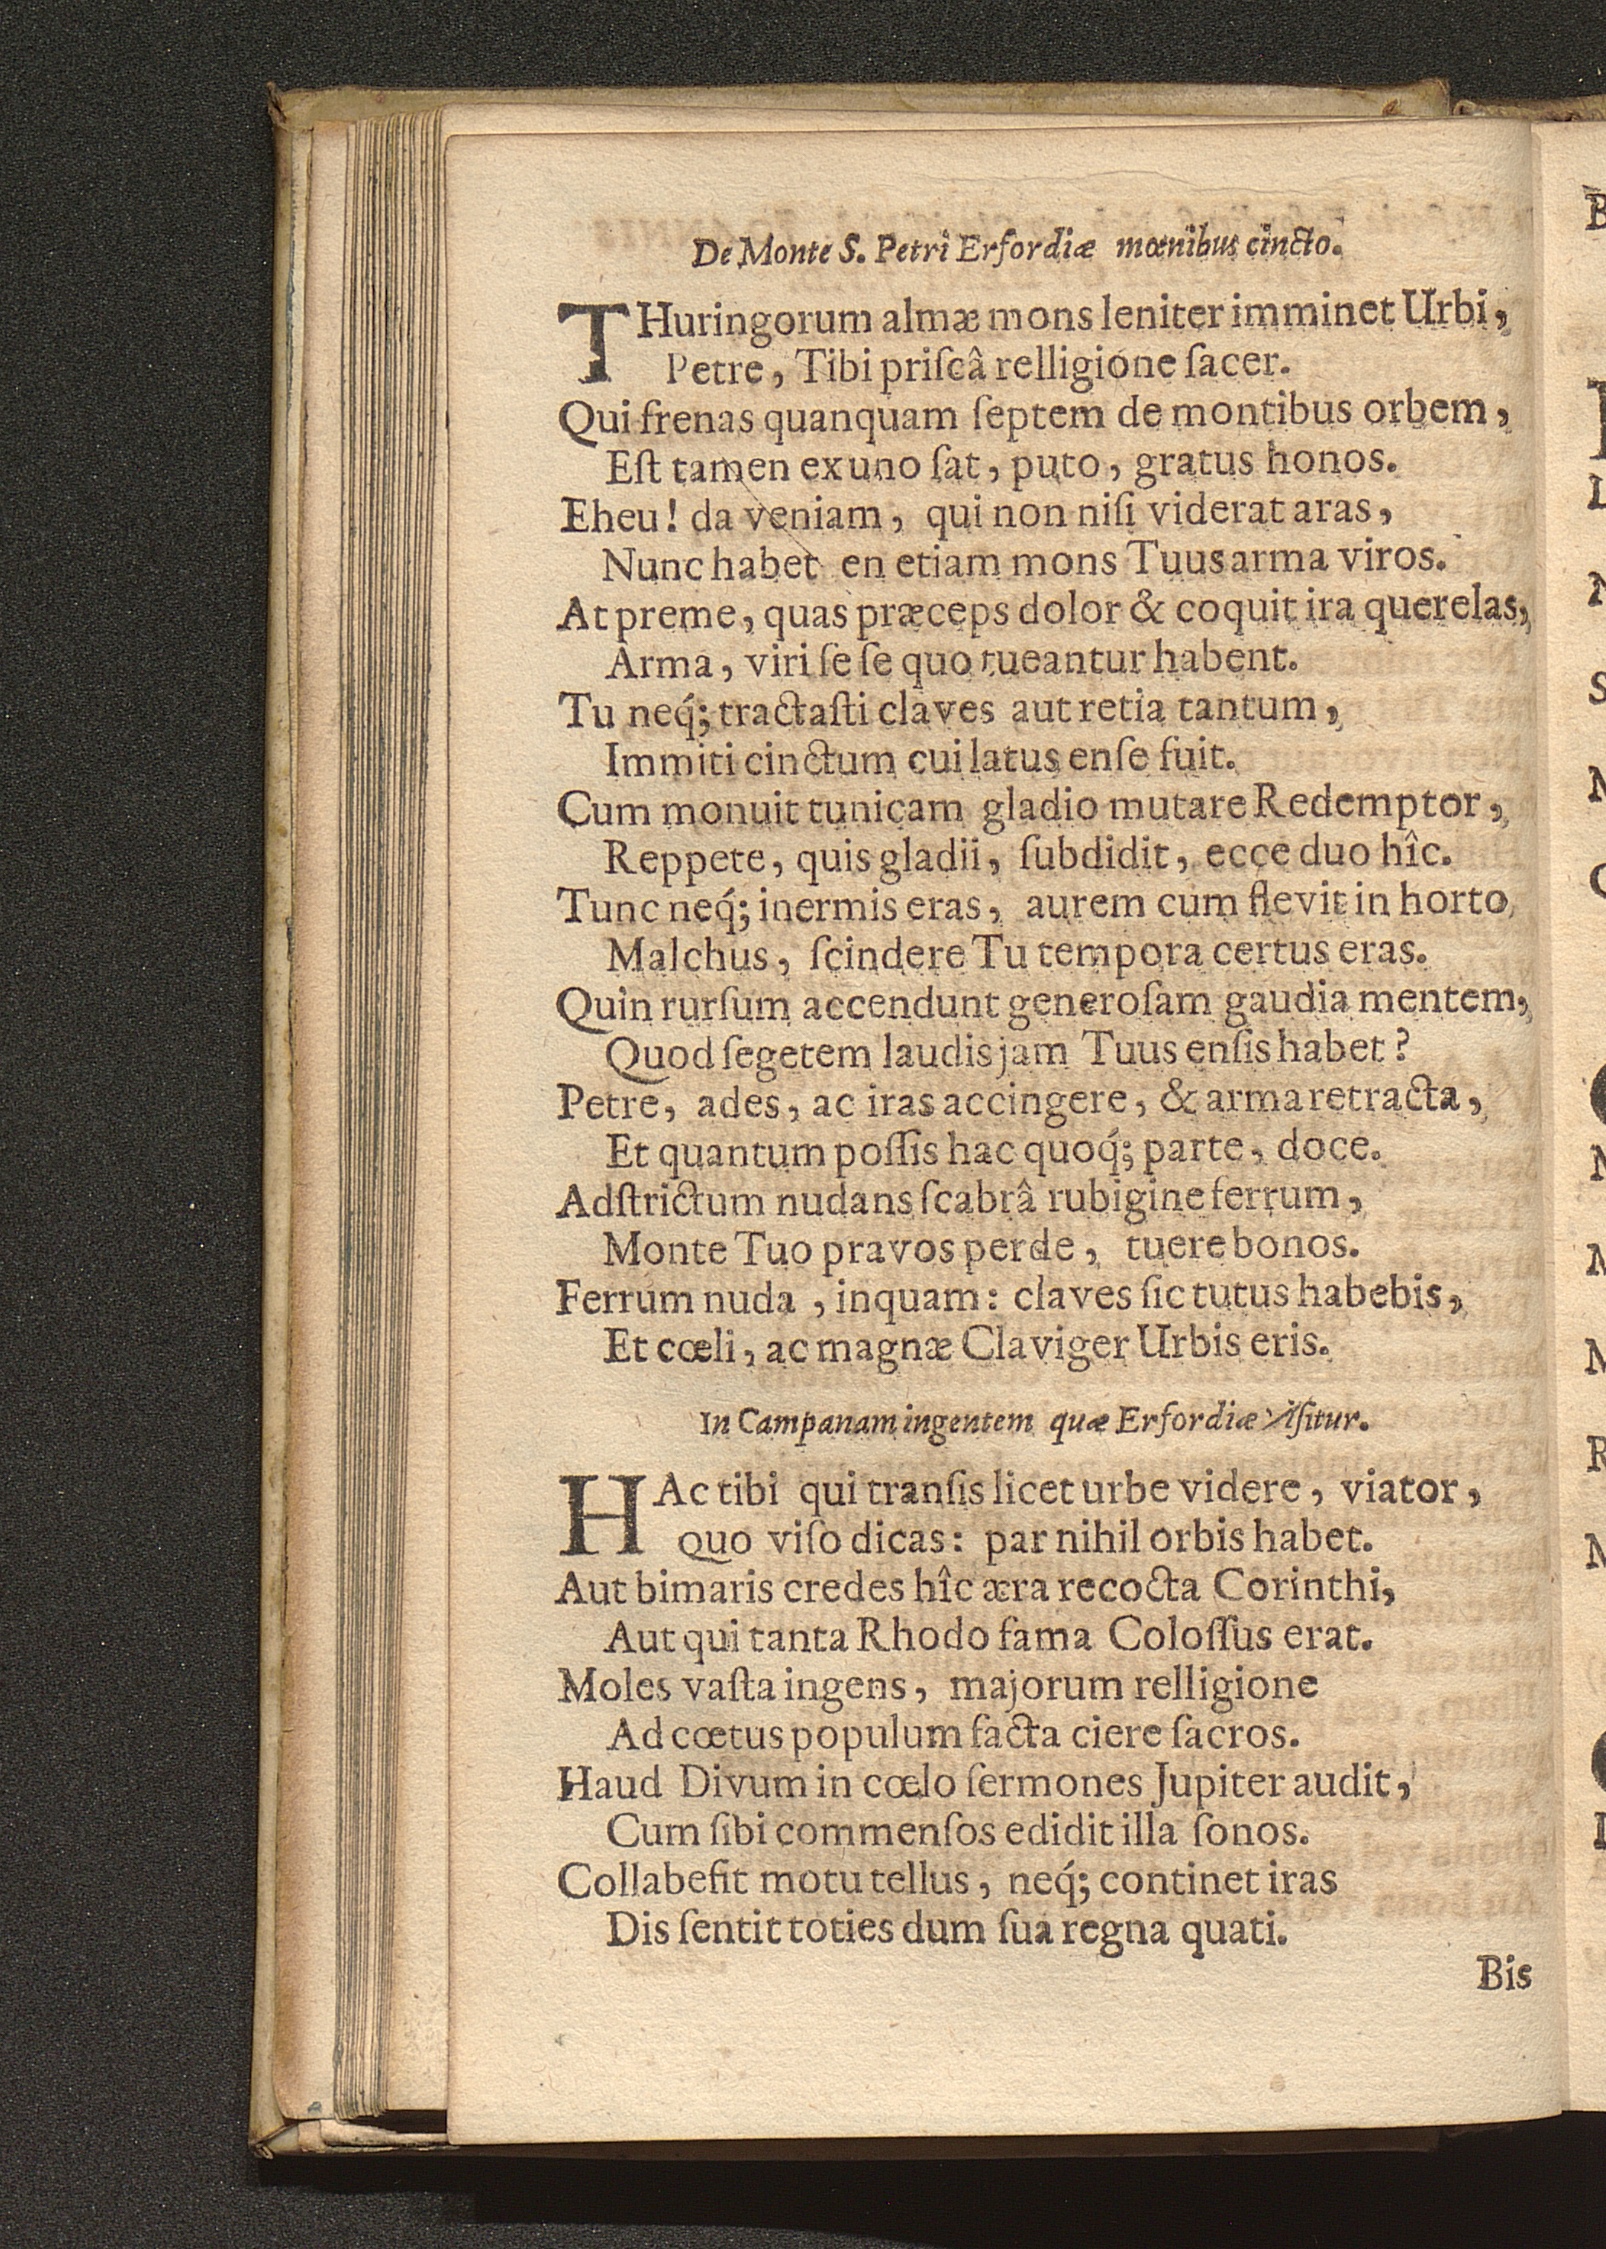 De Monte S. Petri Erfordiæ mœnibus cincto.
THuringorum almæ mons leniter imminet Urbi,
Petre, Tibi priſcâ relligione ſacer.
Qui frenas quanquam ſeptem de montibus orbem,
Eſt tamen ex uno ſat, puto, gratus honos.
Eheu! da veniam, qui non niſi viderat aras,
Nunc habet en etiam mons Tuus arma viros.
At preme, quas præceps dolor & coquit ira querelas,
Arma, viri ſe ſe quo tueantur habent.
Tu neq́; tractaſti claves aut retia tantum,
Immiti cinctum cui latus enſe fuit.
Cum monuit tunicam gladio mutare Redemptor,
Reppete, quis gladii, ſubdidit, ecce duo hîc.
Tunc neq́; inermis eras, aurem cum flevit in horto
Malchus, ſcindere Tu tempora certus eras.
Quin rurſum accendunt generoſam gaudia mentem,
Quod ſegetem laudis jam Tuus enſis habet?
Petre, ades, ac iras accingere, & arma retracta,
Et quantum poſſis hac quoq́; parte, doce.
Adſtrictum nudans ſcabrâ rubigine ferrum,
Monte Tuo pravos perde, tuere bonos.
Ferrum nuda, inquam: claves ſic tutus habebis,
Et cœli, ac magnæ Claviger Urbis eris.
In Campanam ingentem quæ Erfordiæ viſitur.
HAc tibi qui tranſis licet urbe videre, viator,
Quo viſo dicas: par nihil orbis habet.
Aut bimaris credes hîc æra recocta Corinthi,
Aut qui tanta Rhodo fama Coloſſus erat.
Moles vaſta ingens, majorum relligione
Ad cœtus populum facta ciere ſacros.
Haud Divum in cœlo ſermones Jupiter audit,
Cum ſibi commenſos edidit illa ſonos.
Collabefit motu tellus, neq́; continet iras
Dis ſentit toties dum ſua regna quati.
Bis